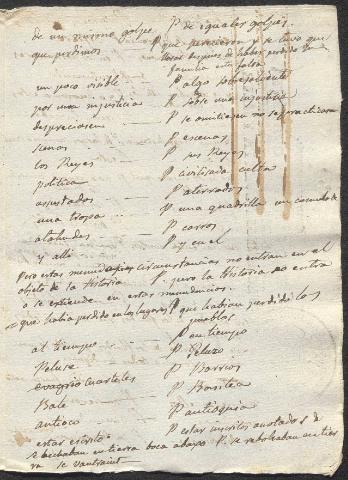 de un mismo golpe P. de iguales golpes.
que perdimos P. que perecieron y se tuvo que
llorar despues de haber perdido la
familia esta falta
un poco visible P. algo sobresaliente
por una injusticia P. sobre una injusticia
despreciasen P. se omitiesen no se practicara
senos P. escenas
los Reyes P. sus Reyes
politica P. civilizada culta
asustados P. aterrados
una tropa ... P. una quadrilla un
atahudes P. carros
y alli P. y en el
Pero estas menudas circunstancias no entran en el
objeto de la historia P. pero la historia no entra
o se estiende en estas menudencias.
= que habia perdido en los lugares P. que habian perdido los
pueblos
al tiempo P. en tiempo
Peluse P. Peluzo
Cuarteles P. Barrios
Bale P. Basilea
antioco P. antioquia
estar escrito P. estar inscritos anotados &
se echaban en tierra boca abajo P. se
ra se vautraint